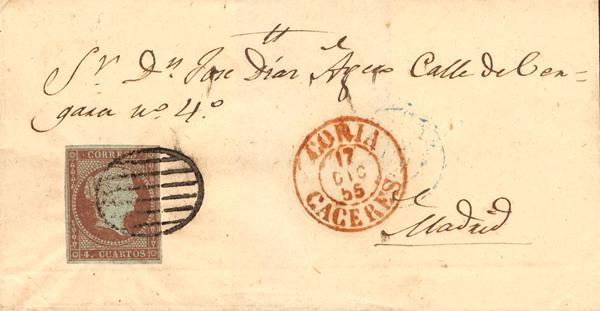 Sr Dn Jose Diaz Agero Calle del Ben=
gara no. 4o
CORREOS
4. CUARTOS
CORIA
17
DIC
55
CACERES
Madrid